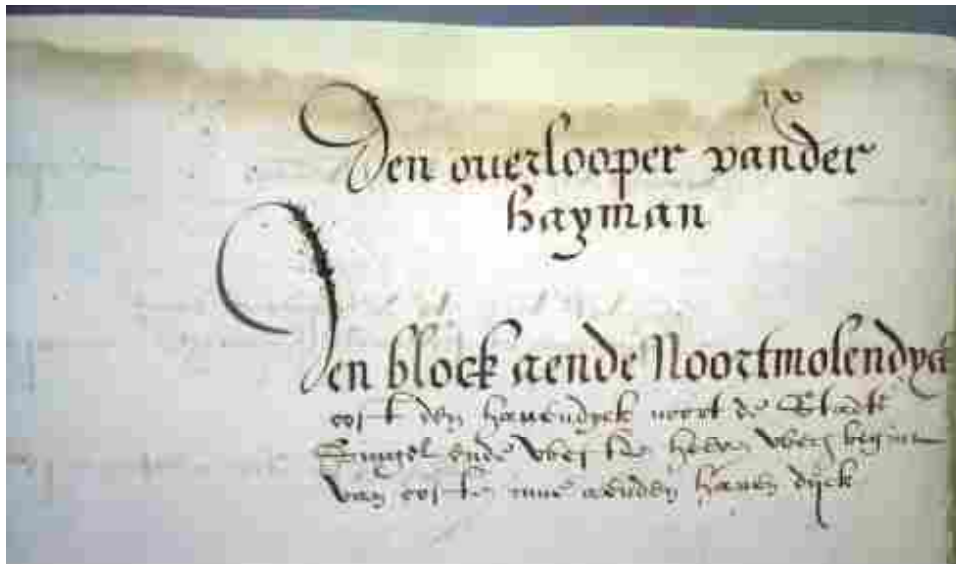 Den ouerlooper vander
hayman
Den block aende Noortmolendyck
oost den hauendyck noort de Stadts
Singel ende west de heere wech begint
van oosten aenden hauen dyck